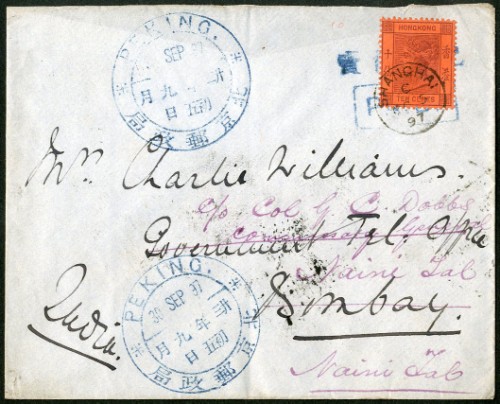 PEKING.
SEP 97
年
月 九
日 初五
北京郵政局
HONGKONG
TEN CENTS
SHANGHAI
97
Mrs Charlie Williams.
c/o Col G C Dobbs
Government Tel. Office
Naini Tal
Bombay.
India.
Naini Tal
PEKING.
30 SEP 97
年
月 九
日 初五
北京郵政局